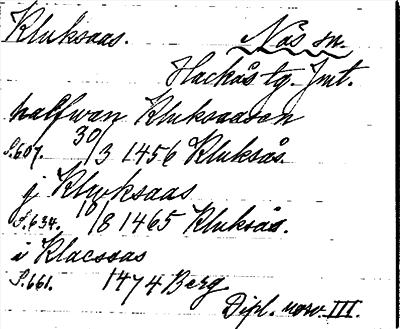 Kluksaas. Näs sn.
Hackås tg. Jmt.
halfwan Kluksaasen
S.607. 30/3 1456 Kluksås
j Klwksaas
S.634. 10/8 1465 Kluksås.
i Klacsaas
S.661. 1474 Berg
Dipl. norv. III.